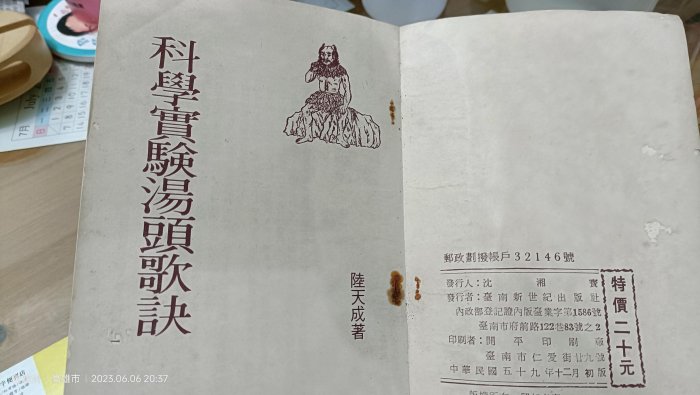 科學實驗湯頭歌訣
陸天成著
郵政劃撥帳戶32146號
發行人：沈湘
發行者：臺南新世紀出版社
內政部登記證內版臺業字第1586號
臺南市府前路122巷83號之2
印刷者：開平印刷廠
臺南市仁愛街廿九號
中華民國五十九年十二月初版
特價二十元
7月
July
2023.06.06 20:37